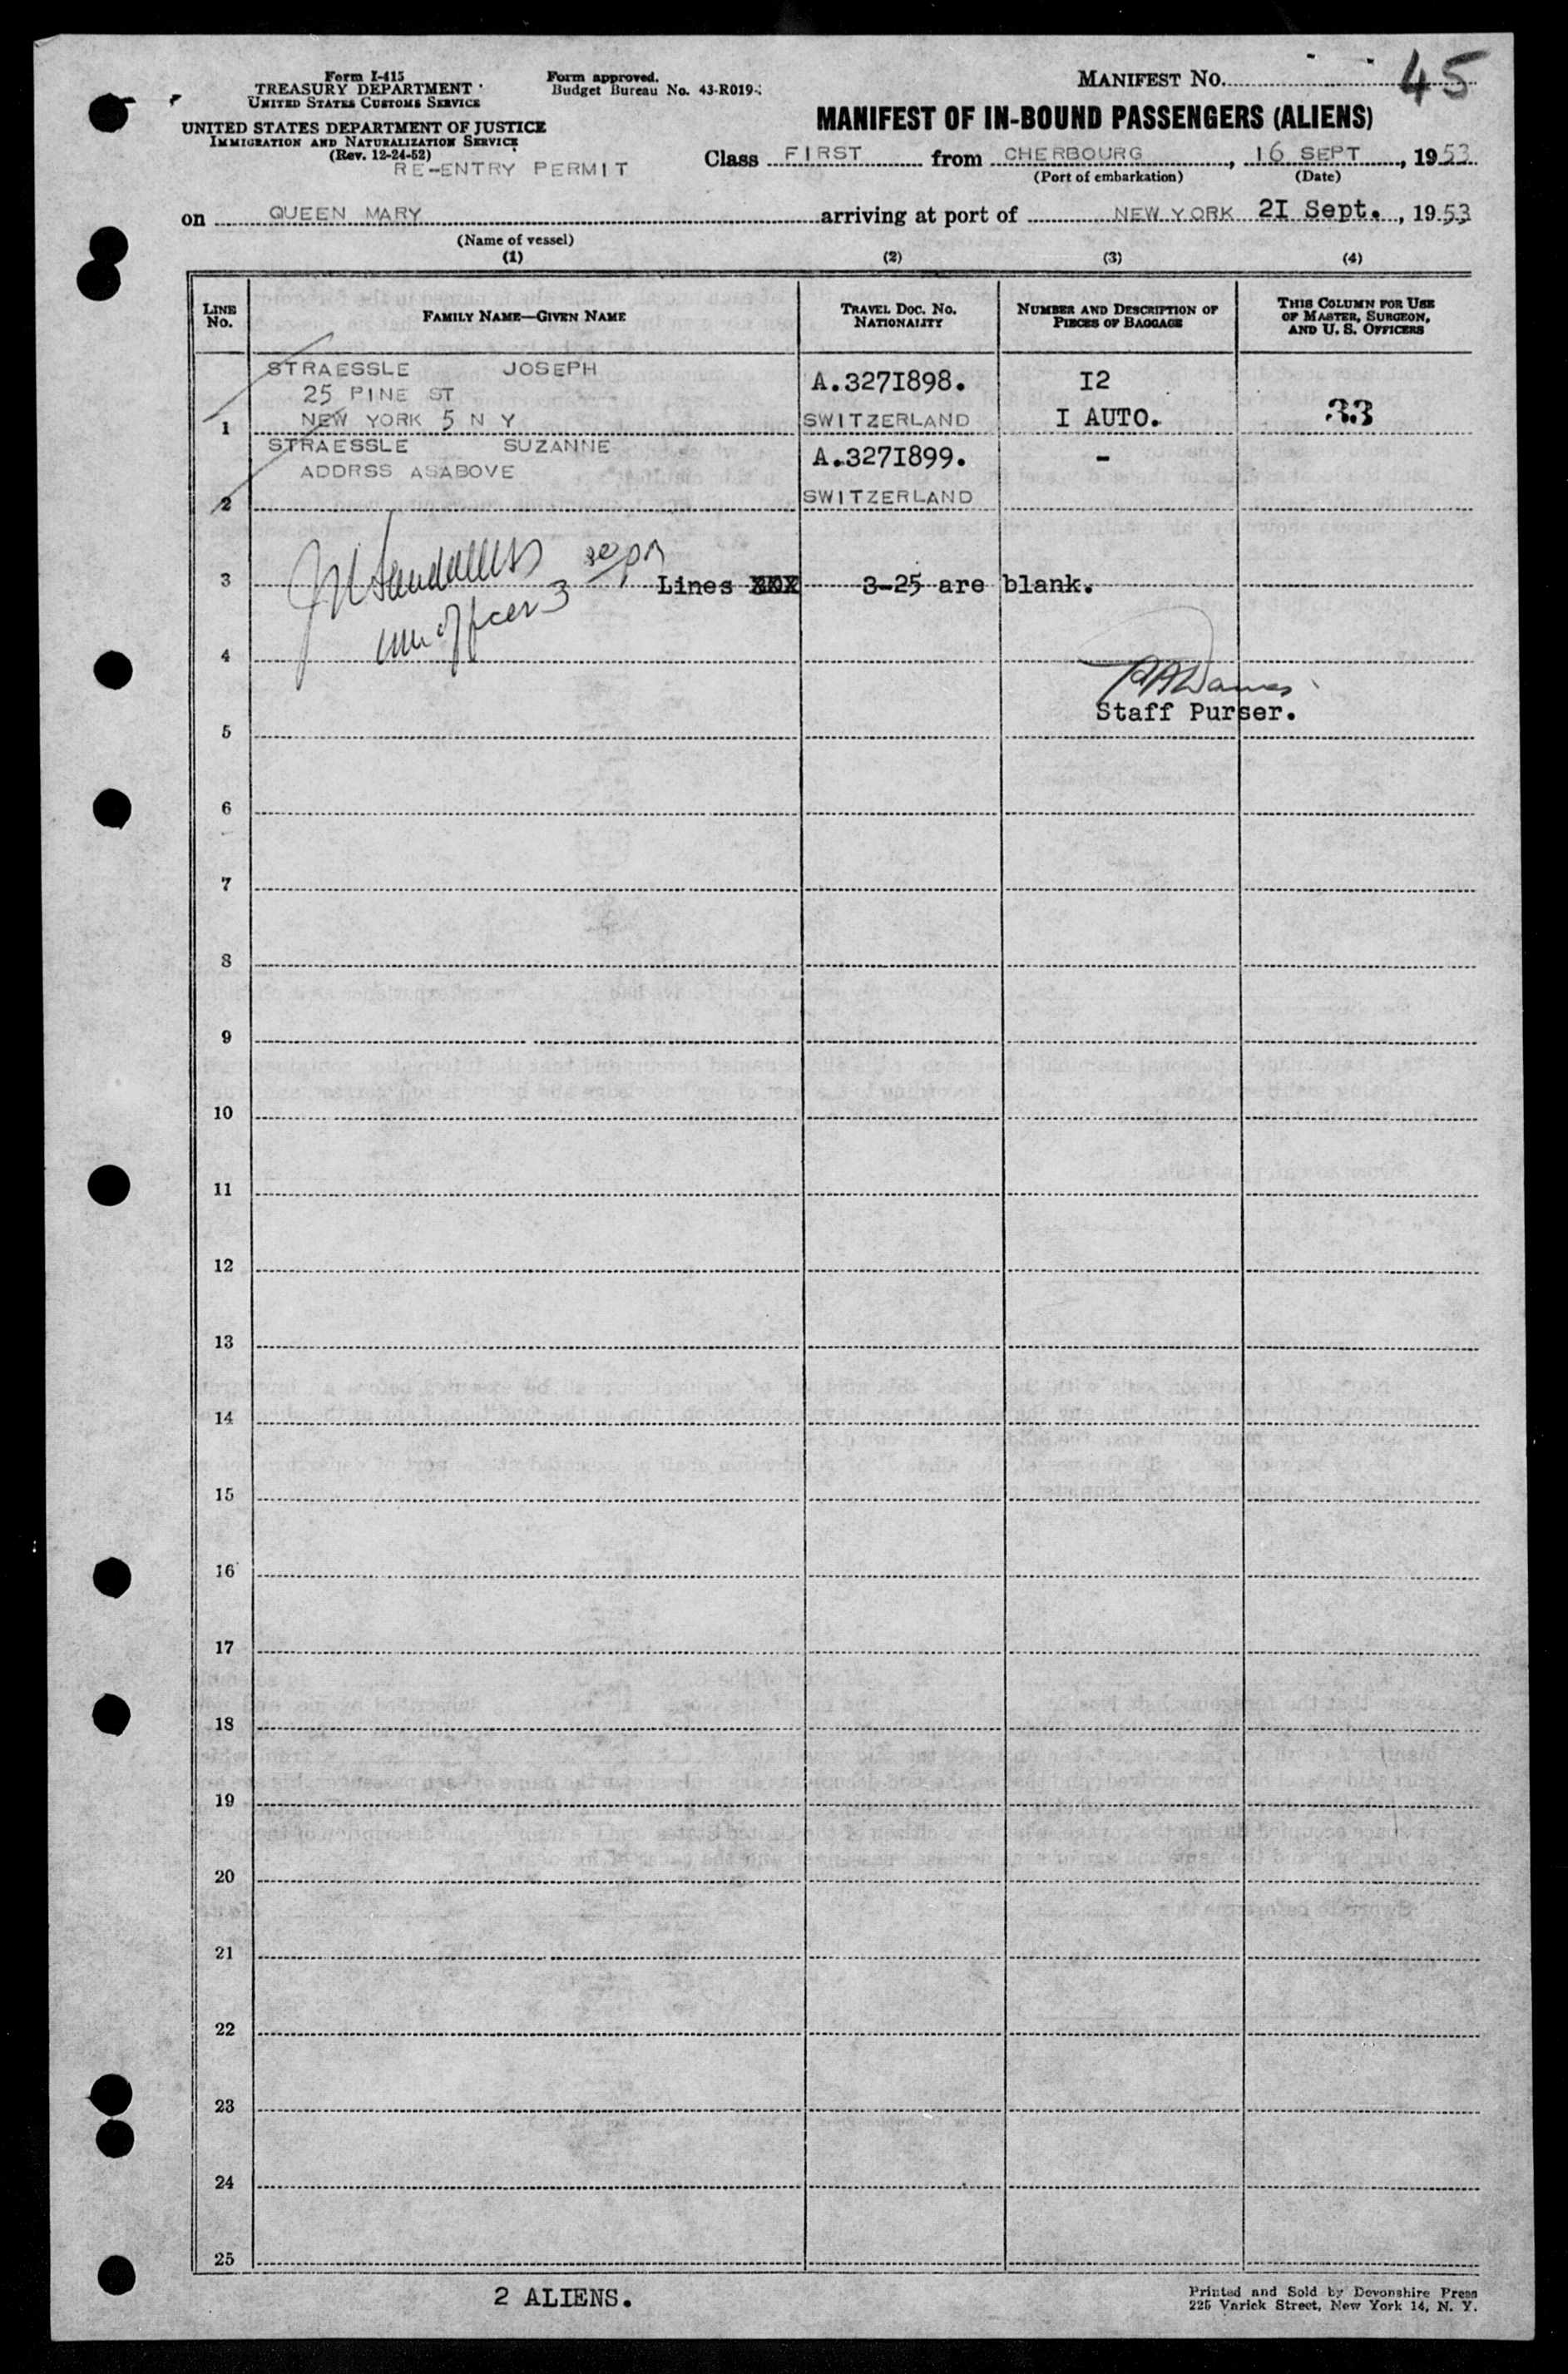 Form I-415
TREASURY DEPARTMENT
UNITED STATES CUSTOMS SERVICE
UNITED STATES DEPARTMENT OF JUSTICE
IMMIGRATION AND NATURALIZATION SERVICE
(Rev. 12-24-52)
RE-ENTRY PERMIT
Form approved.
Budget Bureau No. 43-R019-
MANIFEST No. 45
MANIFEST OF IN-BOUND PASSENGERS (ALIENS)
Class FIRST from CHERBOURG, 16 SEPT, 1953
(Port of embarkation) (Date)
on QUEEN MARY arriving at port of NEW YORK 21 Sept., 1953
(Name of vessel)
(1) (2) (3) (4)
LINE No. FAMILY NAME—GIVEN NAME TRAVEL DOC. No. NATIONALITY NUMBER AND DESCRIPTION OF PIECES OF BAGGAGE THIS COLUMN FOR USE OF MASTER, SURGEON, AND U. S. OFFICERS
STRAESSLE JOSEPH A.3271898. 12
25 PINE ST
1 NEW YORK 5 N Y SWITZERLAND I AUTO. 33
STRAESSLE SUZANNE A.3271899. -
ADDRSS ASABOVE
2 SWITZERLAND
3 Lines XXX 3-25 are blank.
4
Staff Purser.
5
6
7
8
9
10
11
12
13
14
15
16
17
18
19
20
21
22
23
24
25
2 ALIENS.
Printed and Sold by Devonshire Press
225 Varick Street, New York 14, N. Y.